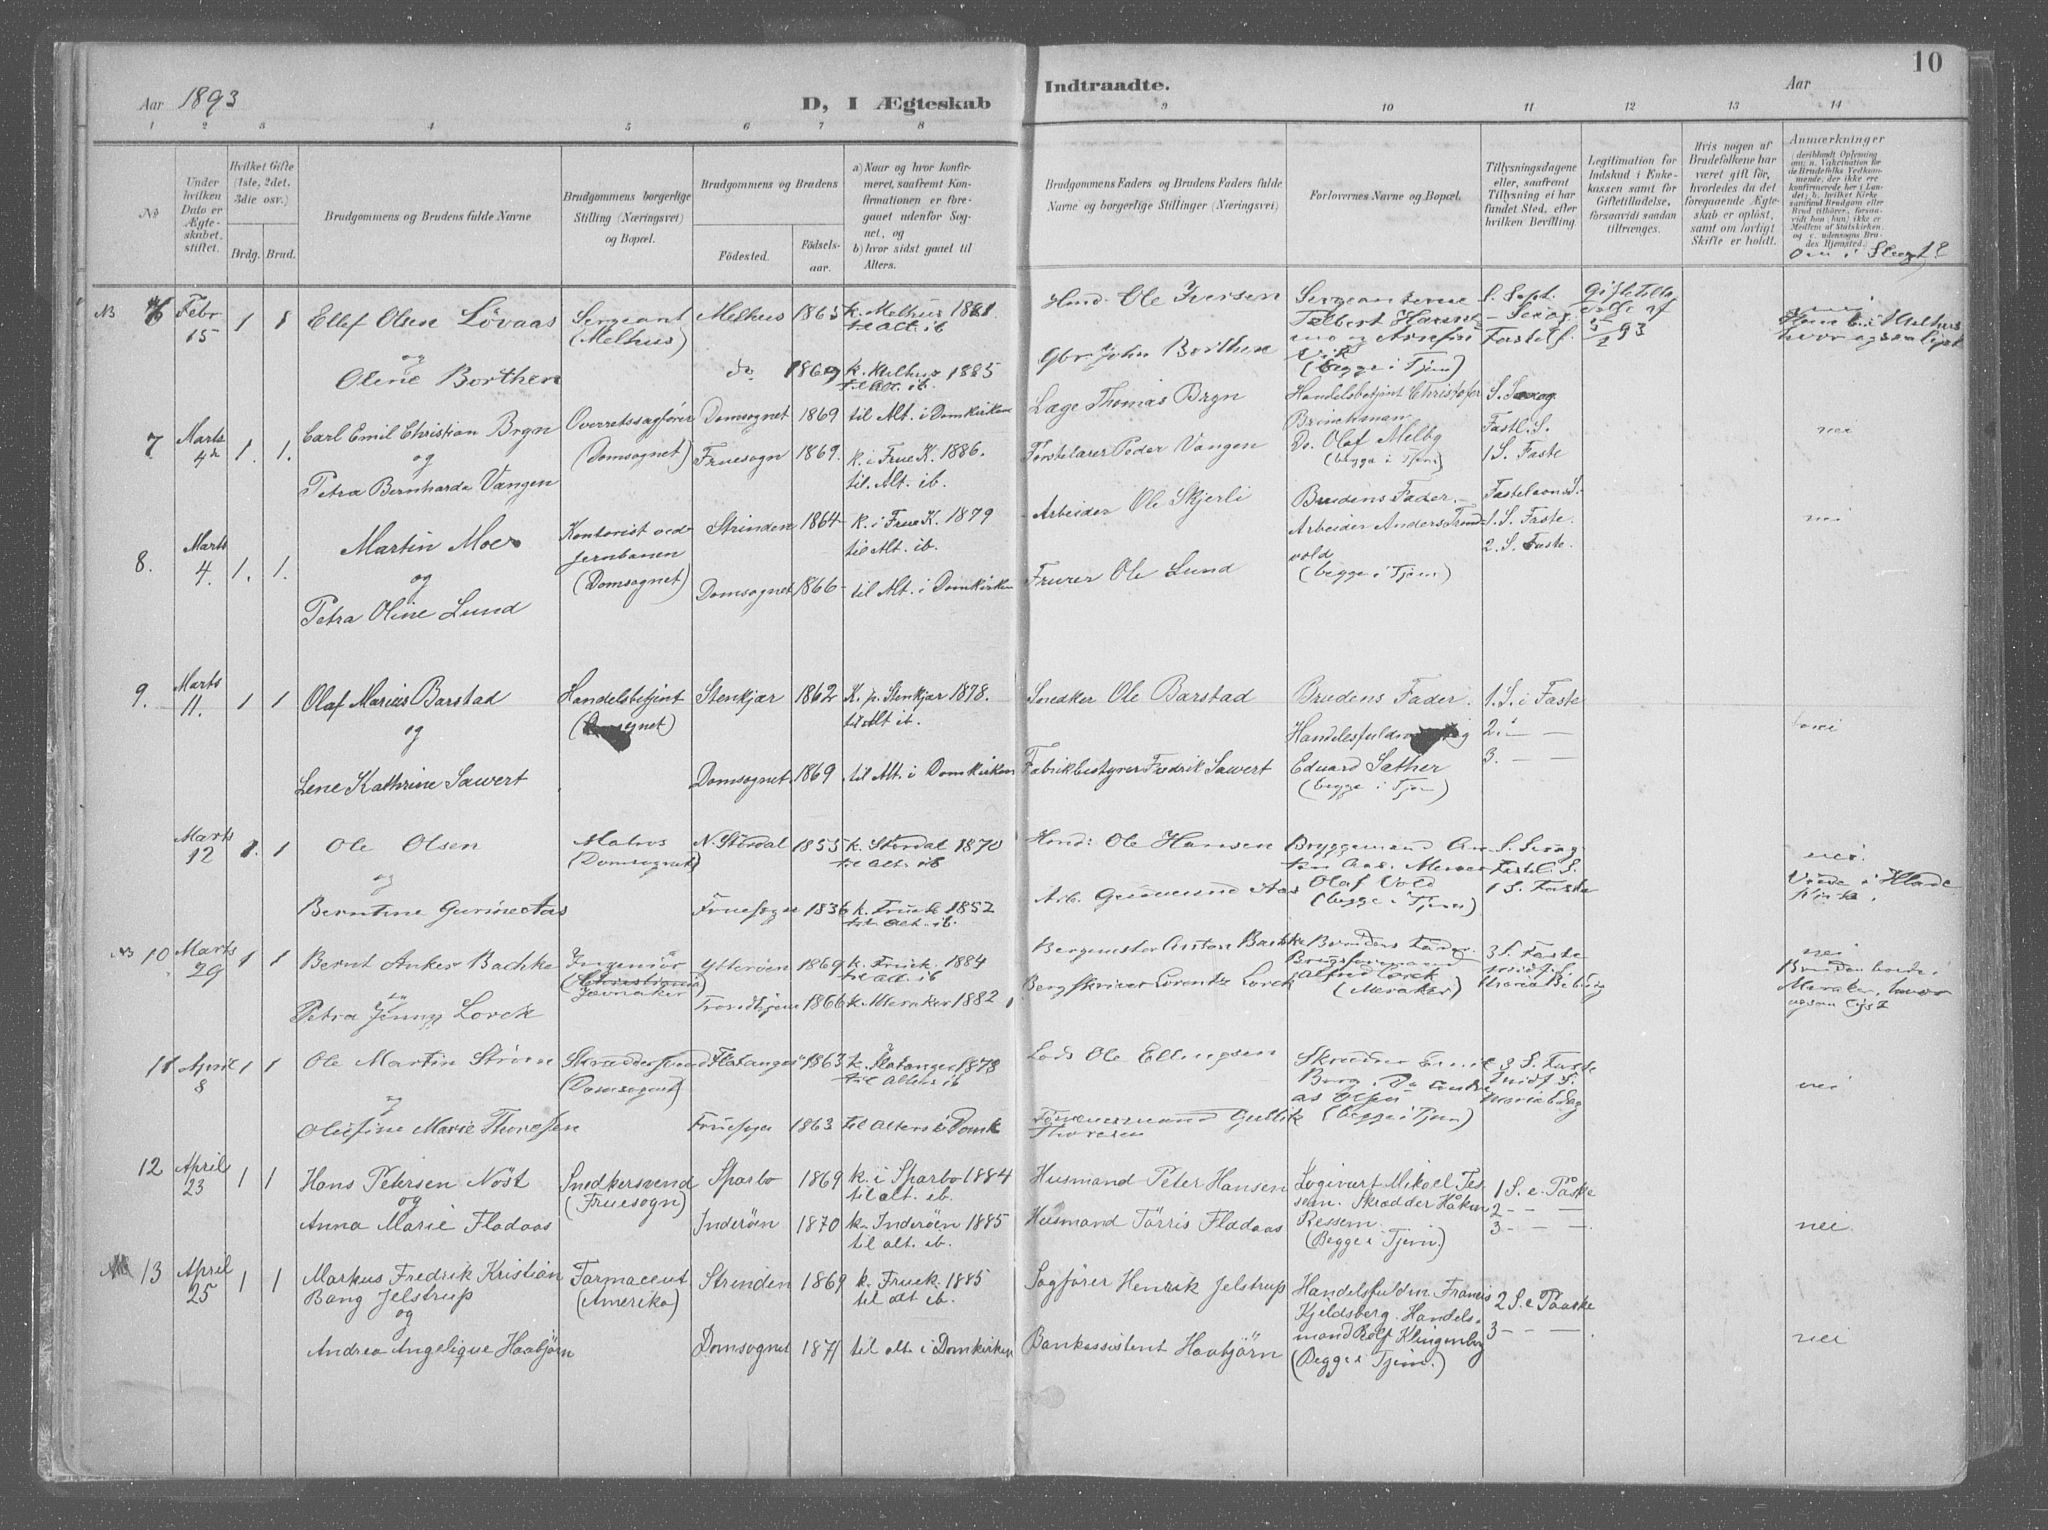 Aar 1893
D, I Ægteskab
Indtraadte.
Aar
10
1 2 3 4 5 6 7 8 9 10 11 12 13 14
No
Under hvilken Dato er Ægteskabet stiftet.
Hvilket Gifte (1ste, 2det, 3die osv.)
Brdg. Brud.
Brudgommens og Brudens fulde Navne
Brudgommens borgerlige Stilling (Næringsvei) og Bopæl.
Brudgommens og Brudens
Fødested.
Fødselsaar.
a) Naar og hvor konfirmeret, saafremt Konfirmationen er foregaaet udenfor Sognet, og
b) hvor sidst gaaet til Alters.
Brudgommens Faders og Brudens Faders fulde Navne og borgerlige Stillinger (Næringsvei)
Forlovernes Navne og Bopæl.
Tillysningsdagene eller, saafremt Tillysning ei har fundet Sted, efter hvilken Bevilling.
Legitimation for Indskud i Enkekassen samt for Giftetilladelse, forsaavidt saadan tiltrænges.
Hvis nogen af Brudefolkene har været gift før, hvorledes da det foregaaende Ægteskab er opløst, samt om lovligt Skifte er holdt.
Anmærkninger
om i Slægt?
NB 6 Febr 15 1 1 Ellef Olsen Lövaas
og
Oline Borthen
Sergeant
(Melhus)
Melhus 1865 k. Melhus 1881.
til Alt. ib
do 1869 k. Melhus 1885
til Alt. ib.
Hmd. Ole Iversen
Gbr John Borthen
Sergeanterne
(begge i Tjem)
S. Sept.
Fastelf.
Giftetilla
5/2 93
nei
7 Marts 4de 1. 1. Carl Emil Christian Bryn
og
Petra Bernharda Vangen
Overretssagförer
(Domsognet)
Domsognet 1869 til Alt. i Domkirken
Fruesogn 1869. k. i Frue K. 1886.
til. Alt. ib.
Læge Thomas Bryn
Forstelærer Peder Vangen
Handelsbetjent Christofer
Brinchman
Do. Olaf Melby
(begge i Tjem)
S. Sexag
Fastl. S.
1 S. Faste
nei
8. Marts 4. 1. 1. Martin Moe
og
Petra Oline Lund
Kontorist ved
Jernbanen
(Domsognet)
Strinden 1864 k. i Frue K. 1879
til Alt. ib.
Domsognet 1866 til Alt. i Domkirken
Arbeider Ole Skjerli
Frurer Ole Lund
Brudens Fader.
Arbeider Anders Trond-
vold
(begge i Tjem)
Fastelavns S.
1. S. Faste.
2. S. Faste.
nei
9. Marts 11. 1 1 Olaf Marius Barstad
og
Lene Kathrine Sawert
Handelsbetjent
Stenkjær 1862 K. p. Stenkjær 1878.
til Alt ib.
Domsognet 1869 til Alt. i Domkirken
Snedker Ole Barstad
Fabrikbestyrer Fredrik Sawert
Brudens Fader.
Eduard Sæther
(begge i Tjem)
1. S. i Faste
2. — —
3. — —
nei
Marts 12 1. 1 Ole Olsen
og
Berntine Gurine Aas
Matros
(Domsognet)
N. Stördal 1855 k. Stördal 1870
til Alt. ib
Fruesogn 1836 k. Fruek 1852
til alt. ib.
Hmd: Ole Hansen
Arb. Gudmund Aas
Bryggemand An-
ton Aas.
Olaf Vold
(begge i Tjem)
S. Sexag
Fastel. S.
1 S. Faste
nei.
Viede i Hlade
Kirke.
NB 10 Marts 29 1 1 Bernt Anker Bachke
og
Petra Jenny Lorck
Ingeniör
(Christiania)
Jevnaker
Ytteröen 1869 k. Fruek. 1884
til Alt. ib
Trondhjem 1866 k. Meraker 1882
Bergmester Anton Bachke
Bergskriver Lorentz Lorck
Brudens Fader.
Alfred Lorck
(Meraker)
3 S. Faste
Midf. S.
Maria Beb.dag
nei
Bruden boede i
Meraker, hvor
ogsaa lyst
11 April 8 1 1 Ole Martin Ström
og
Olefine Marie Thoresen
Skreddersvend
(Domsognet)
Flatanger 1863 k. Flatanger 1878
til Alters ib
Fruesogn 1863 til Alters i Domk
Lods Ole Ellingsen
Tömmermand Gullik
Thoresen
Skredder Emil
Berg, Do Andre-
as Olsen
(begge i Tjem)
3 S. Faste
Midf S.
Maria B.dag
nei
12 April 23 1 1 Hans Petersen Nöst
og
Anna Marie Flodaas
Snedkersvend
(Fruesogn)
Sparbo 1869 k. i Sparbo 1884
til alt. ib.
Inderöen 1870 k. Inderöen 1885
til alt. ib.
Husmand Peter Hansen
Husmand Törris Flodaas
Logivert Mikael Tes-
sem. Skrædder Håken
Ressem.
(Begge i Tjem.)
1 S. e. Påske
2 - - —
3 - - —
nei.
13 April 25 1 1 Markus Fredrik Kristian
Bang Jelstrup
og
Andrea Angelique Haabjörn
Farmaceut
(Amerika)
Strinden 1869 k. Fruek. 1885
til alt ib.
Domsognet 1871 til alt. i Domkirken
Sagförer Henrik Jelstrup
Bankassistent Haabjörn
Handelsfuldm. Francis
Kjeldsberg. Handels-
mand Rolf Klingenberg
(Begge i Tjem.)
2 S. e Paaske
3 - - —
nei